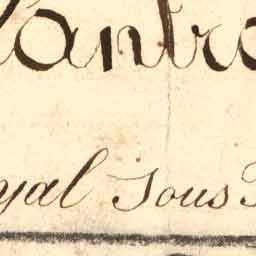 antr
yal sous